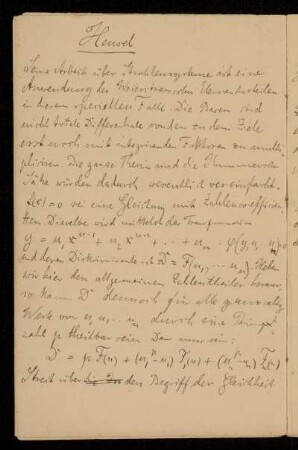 Hensel
Seine Arbeit über Strahlensysteme ist eine
Anwendung der Weierstrassschen Untersuchungen
in diesem speziellen Falle. Die Basen sind
nicht totale Differentiale sondern zu dem Ziele
erst noch mit integrirenden Faktoren zu multi-
pliciren. Die ganze Theorie und die Kummerschen
Sätze würden dadurch wesentlich vereinfacht.
f(x) = 0 sei eine Gleichung mit Zahlencoefficien-
ten. Dieselbe wird mittelst der Transformation
y = u₁ x^{n-1} + u₂ x^{n-2} + ... + u_n : φ(y, u₁ u_n) = 0
und deren Diskriminante ist D = F(u₁, ... u_n). Heben
wir hier den allgemeinen Zahlentheiler heraus,
so kann D dennoch für alle ganzzahlig
Werte von u₁ u₂ ... u_n durch eine Prim-
zahl p theilbar seien. Dann muss sein:
D = p F(u) + (u₁^p - u₁) F₁(u) + (u₂^p - u₂) F₂(u)
Streit über den Begriff der Gleichheit